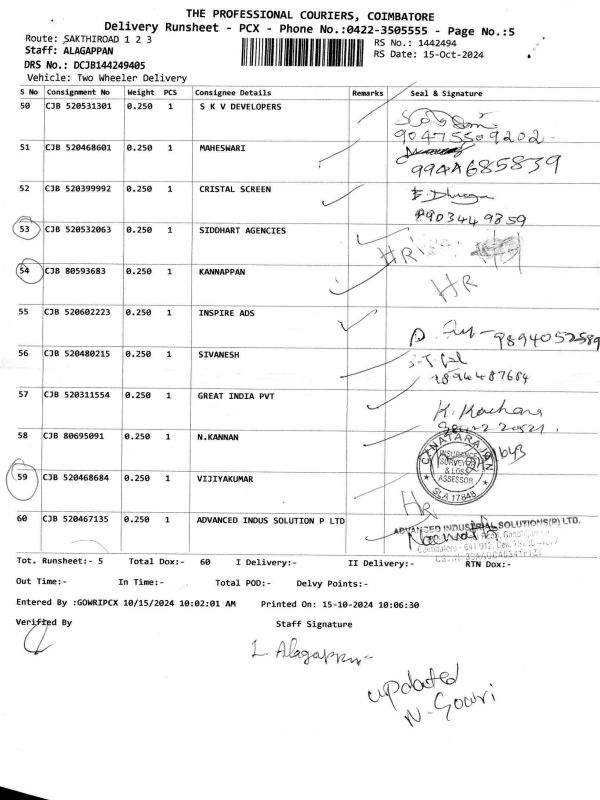 THE PROFESSIONAL COURIERS, COIMBATORE
Delivery Runsheet - PCX - Phone No.:0422-3505555 - Page No.:5
Route: SAKTHIROAD 1 2 3
RS No.: 1442494
Staff: ALAGAPPAN
RS Date: 15-Oct-2024
DRS No.: DCJB144249405
Vehicle: Two Wheeler Delivery
S No Consignment No Weight PCS Consignee Details Remarks Seal & Signature
50 CJB 520531301 0.250 1 S K V DEVELOPERS
51 CJB 520468601 0.250 1 MAHESWARI
52 CJB 520399992 0.250 1 CRISTAL SCREEN
53 CJB 520532063 0.250 1 SIDDHART AGENCIES HR
54 CJB 80593683 0.250 1 KANNAPPAN HR
55 CJB 520602223 0.250 1 INSPIRE ADS
9894052589
56 CJB 520480215 0.250 1 SIVANESH
57 CJB 520311554 0.250 1 GREAT INDIA PVT
58 CJB 80695091 0.250 1 N.KANNAN
INSURANCE
SURVEYOR
& LOSS
ASSESSOR
SLA 17848
59 CJB 520468684 0.250 1 VIJIYAKUMAR HR
60 CJB 520467135 0.250 1 ADVANCED INDUS SOLUTION P LTD
ADVANCED INDUSTRIAL SOLUTIONS(P) LTD.
Tot. Runsheet:- 5 Total Dox:- 60 I Delivery:- II Delivery:- RTN Dox:-
Out Time:- In Time:- Total POD:- Delvy Points:-
Entered By :GOWRIPCX 10/15/2024 10:02:01 AM Printed On: 15-10-2024 10:06:30
Verified By Staff Signature
L. Alagappan
updated
N. Gowri